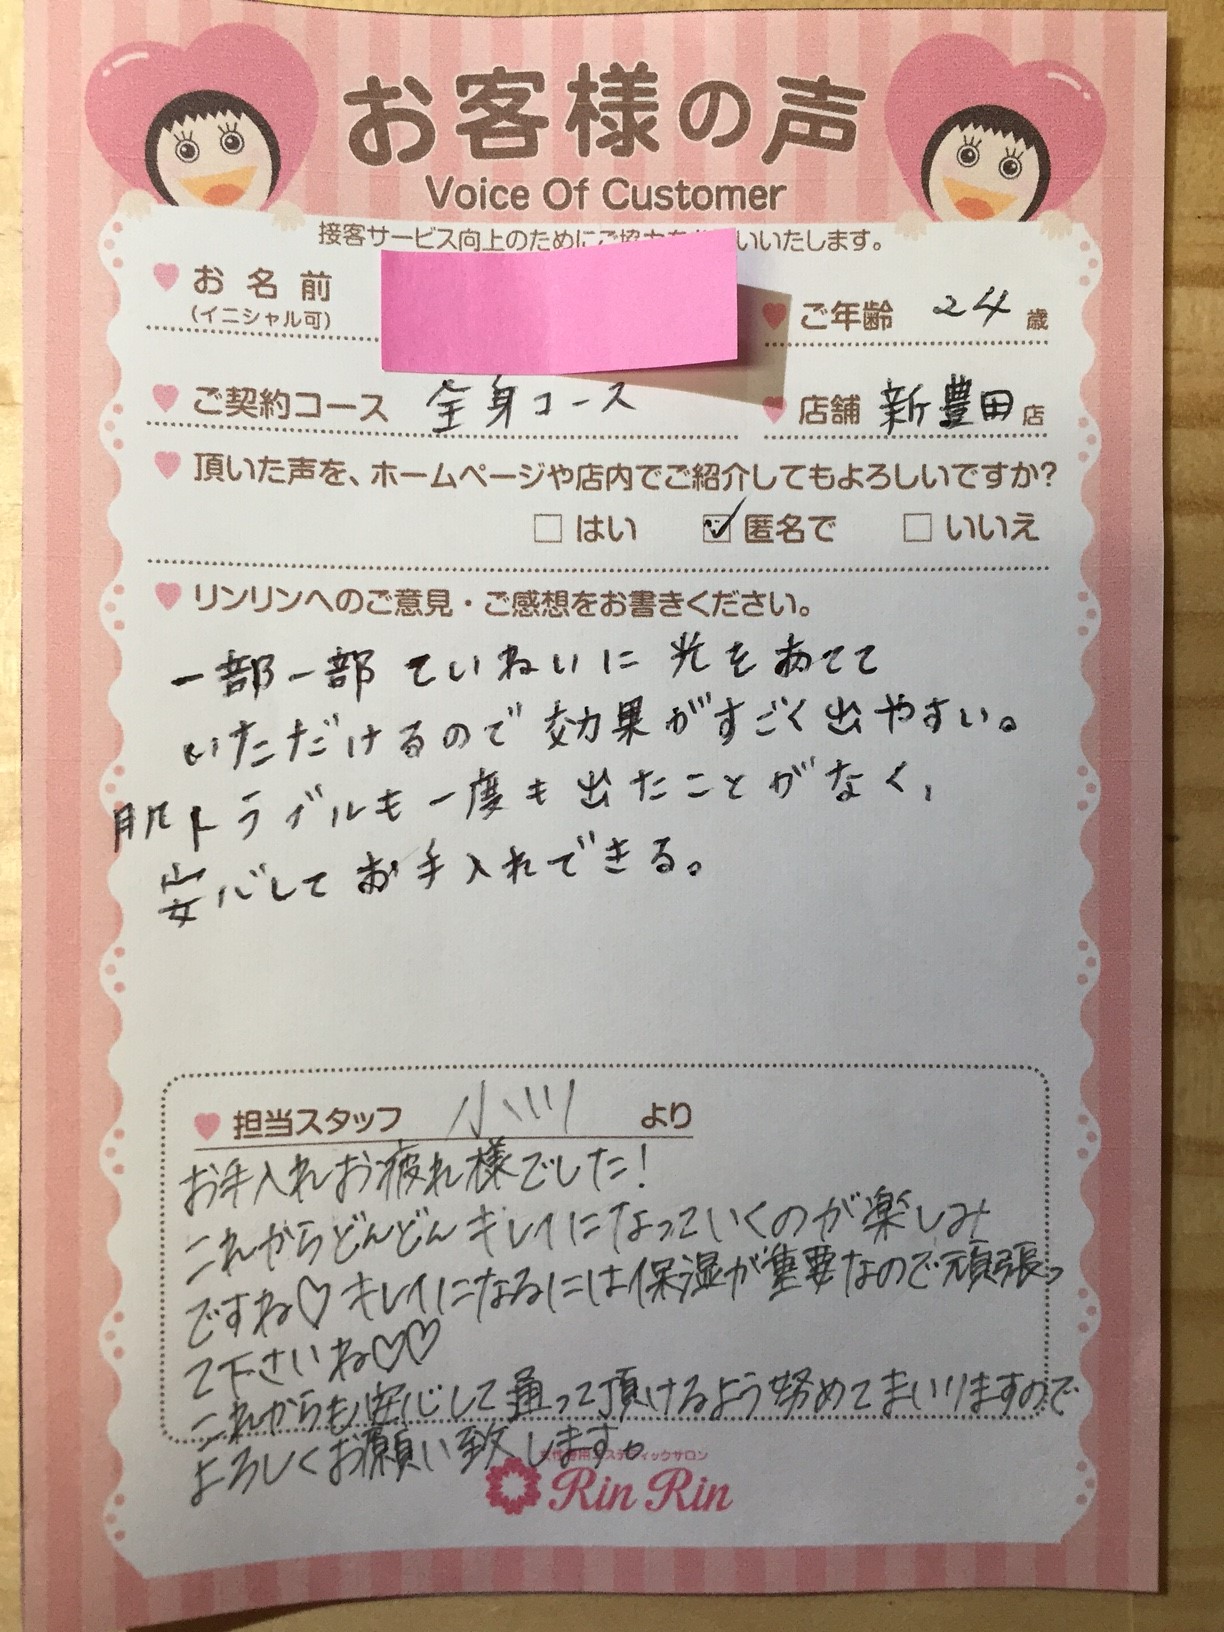 お客様の声
Voice Of Customer
接客サービス向上のためにご協力をお願いいたします。
お名前
(イニシャル可)
ご年齢 24 歳
ご契約コース 全身コース
店舗 新豊田 店
頂いた声を、ホームページや店内でご紹介してもよろしいですか?
□ はい ☑ 匿名で □ いいえ
リンリンへのご意見・ご感想をお書きください。
一部一部ていねいに光をあてて
いただけるので効果がすごく出やすい。
肌トラブルも一度も出たことがなく、
安心してお手入れできる。
担当スタッフ 小川 より
お手入れお疲れ様でした!
これからどんどんキレイになっていくのが楽しみ
ですね♡キレイになるには保湿が重要なので頑張っ
て下さいね♡♡
これからも安心して通って頂けるよう努めてまいりますので
よろしくお願い致します。
女性専用エステティックサロン
Rin Rin